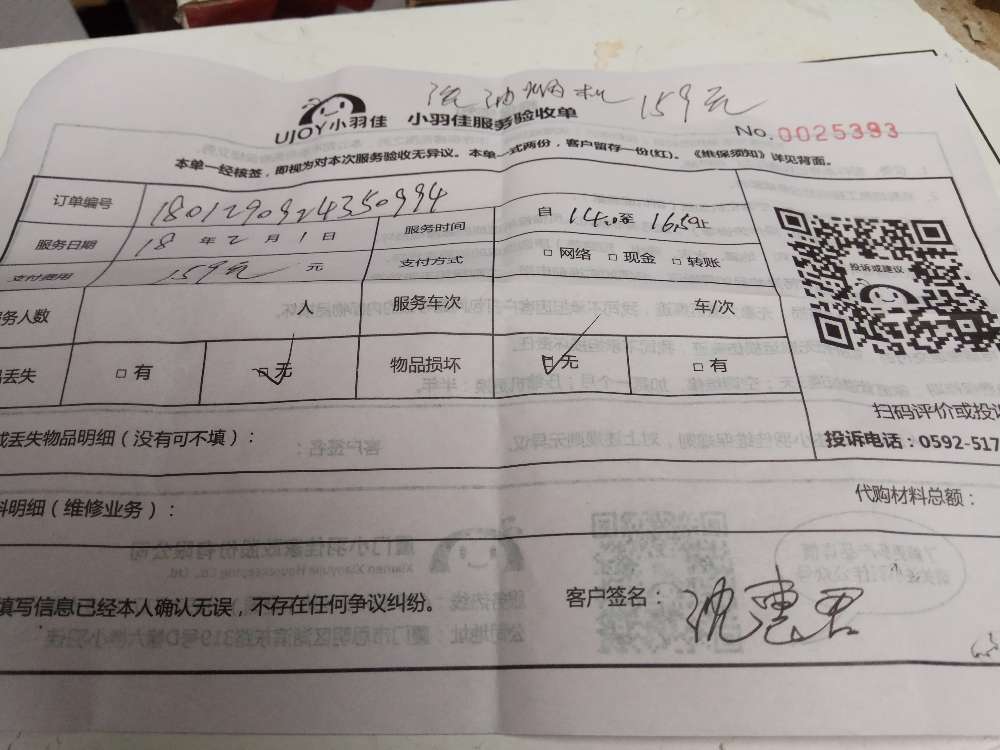 洗油烟机 159元
UJOY小羽佳 小羽佳服务验收单
No. 0025393
本单一经核签，即视为对本次服务验收无异议。本单一式两份，客户留存一份(红)。《维保须知》详见背面。
订单编号 1801290924350994 服务时间 自 14:00 至 16:50 止
服务日期 18 年 2 月 1 日 支付方式 □ 网络 □ 现金 □ 转账
支付费用 159元 元
务人数 人 服务车次 车/次
丢失 □ 有 □ 无 物品损坏 □ 无 □ 有
投诉或建议
扫码评价或投诉
投诉电话：0592-517
或丢失物品明细（没有可不填）：
料明细（维修业务）： 代购材料总额：
填写信息已经本人确认无误，不存在任何争议纠纷。 客户签名： 沈惠君